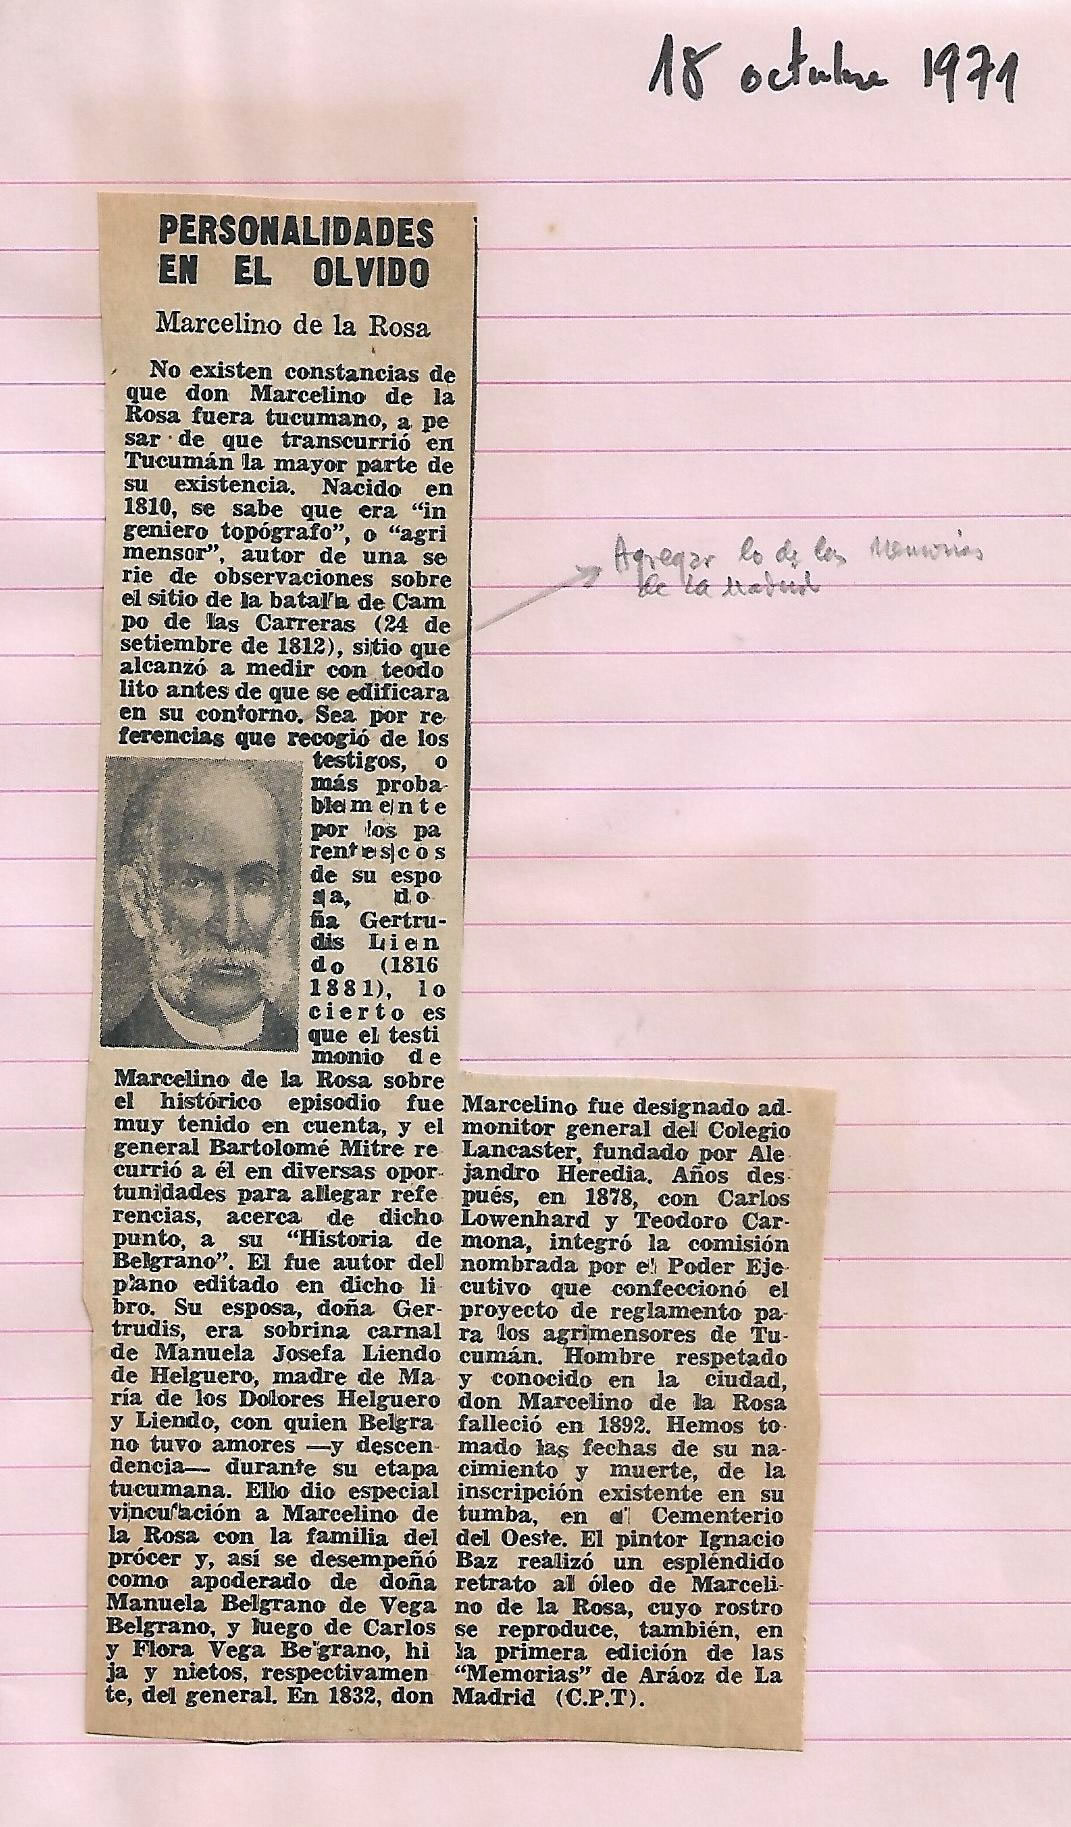 18 octubre 1971
PERSONALIDADES
EN EL OLVIDO
Marcelino de la Rosa
No existen constancias de
que don Marcelino de la
Rosa fuera tucumano, a pe
sar de que transcurrió en
Tucumán la mayor parte de
su existencia. Nacido en
1810, se sabe que era “in
geniero topógrafo”, o “agri
mensor”, autor de una se
rie de observaciones sobre
el sitio de la batalla de Cam
po de las Carreras (24 de
setiembre de 1812), sitio que
alcanzó a medir con teodo
lito antes de que se edificara
en su contorno. Sea por re-
ferencias que recogió de los
testigos, o
más proba-
blemente
por los pa
rentescos
de su espo
sa, do-
ña Gertru-
dis Lien
do (1816
1881), lo
cierto es
que el testi
monio de
Marcelino de la Rosa sobre
el histórico episodio fue
muy tenido en cuenta, y el
general Bartolomé Mitre re
currió a él en diversas opor-
tunidades para allegar refe
rencias, acerca de dicho
punto, a su “Historia de
Belgrano”. El fue autor del
plano editado en dicho li
bro. Su esposa, doña Ger-
trudis, era sobrina carnal
de Manuela Josefa Liendo
de Helguero, madre de Ma
ría de los Dolores Helguero
y Liendo, con quien Belgra
no tuvo amores —y descen-
dencia— durante su etapa
tucumana. Ello dio especial
vinculación a Marcelino de
la Rosa con la familia del
prócer y, así se desempeñó
como apoderado de doña
Manuela Belgrano de Vega
Belgrano, y luego de Carlos
y Flora Vega Belgrano, hi
ja y nietos, respectivamen
te, del general. En 1832, don
Marcelino fue designado ad-
monitor general del Colegio
Lancaster, fundado por Ale
jandro Heredia. Años des-
pués, en 1878, con Carlos
Lowenhard y Teodoro Car-
mona, integró la comisión
nombrada por el Poder Eje-
cutivo que confeccionó el
proyecto de reglamento pa-
ra los agrimensores de Tu-
cumán. Hombre respetado
y conocido en la ciudad,
don Marcelino de la Rosa
falleció en 1892. Hemos to-
mado las fechas de su na-
cimiento y muerte, de la
inscripción existente en su
tumba, en el Cementerio
del Oeste. El pintor Ignacio
Baz realizó un espléndido
retrato al óleo de Marceli-
no de la Rosa, cuyo rostro
se reproduce, también, en
la primera edición de las
“Memorias” de Aráoz de La
Madrid (C.P.T).
Agregar lo de las Memorias
de La Madrid